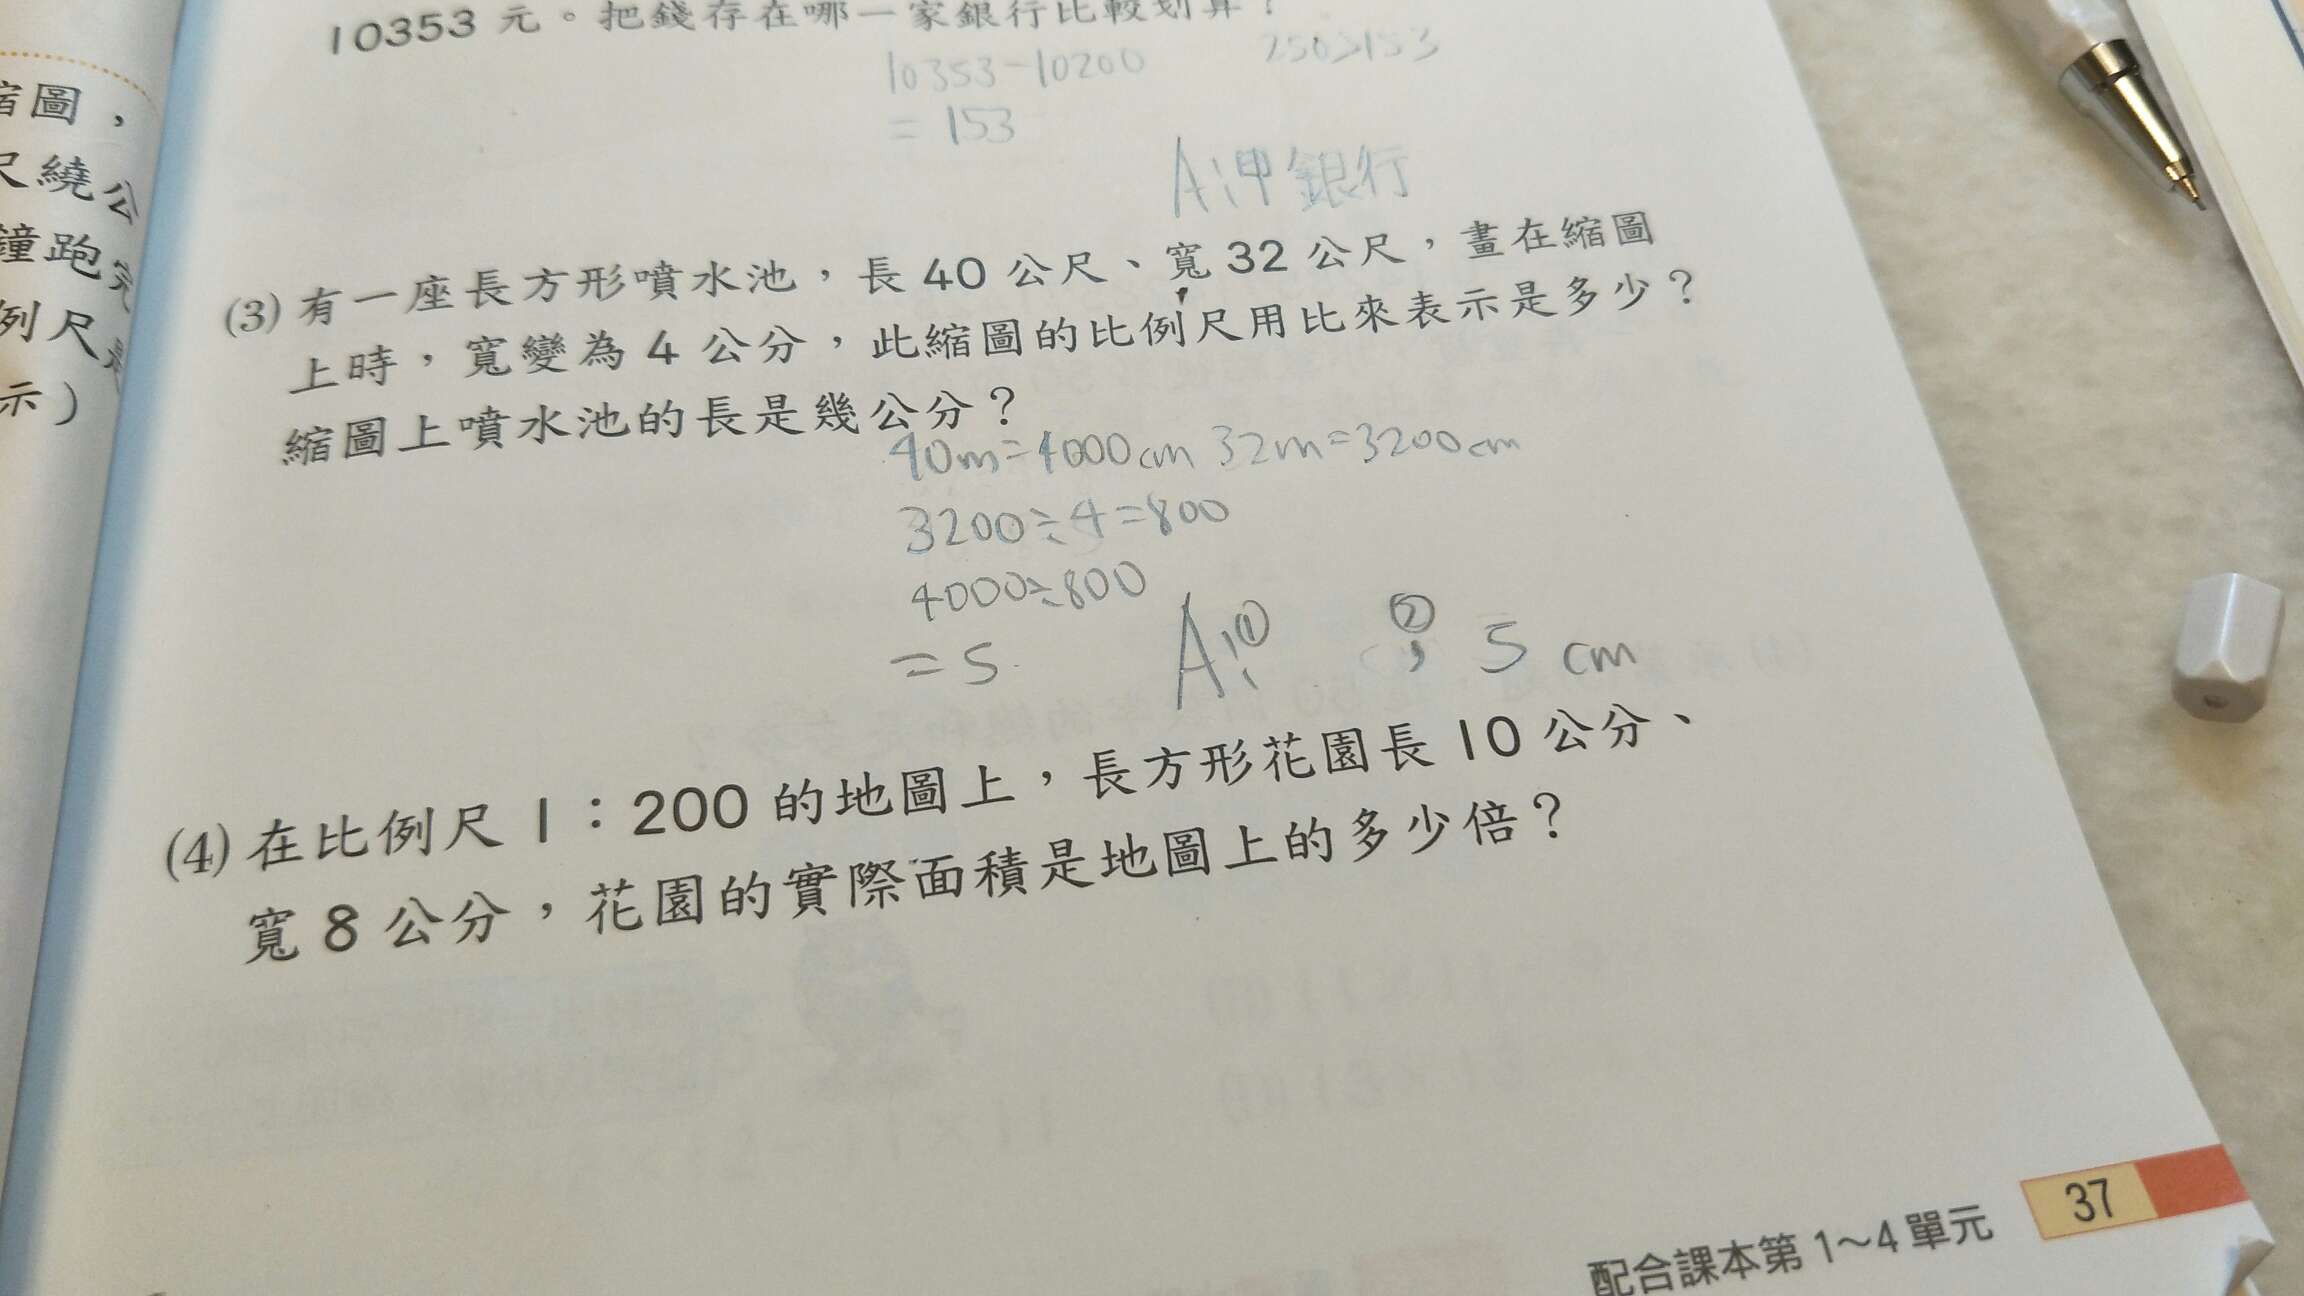 10353 元。把錢存在哪一家銀行比較划算？
10353-10200
250>153
= 153
A:甲銀行
縮圖，
尺繞公
鐘跑完
例尺是
示）
(3) 有一座長方形噴水池，長 40 公尺、寬 32 公尺，畫在縮圖
上時，寬變為 4 公分，此縮圖的比例尺用比來表示是多少？
縮圖上噴水池的長是幾公分？
40m=4000cm 32m=3200cm
3200÷4=800
4000÷800
= 5
A:① ②, 5 cm
(4) 在比例尺 1：200 的地圖上，長方形花園長 10 公分、
寬 8 公分，花園的實際面積是地圖上的多少倍？
37
配合課本第 1～4 單元